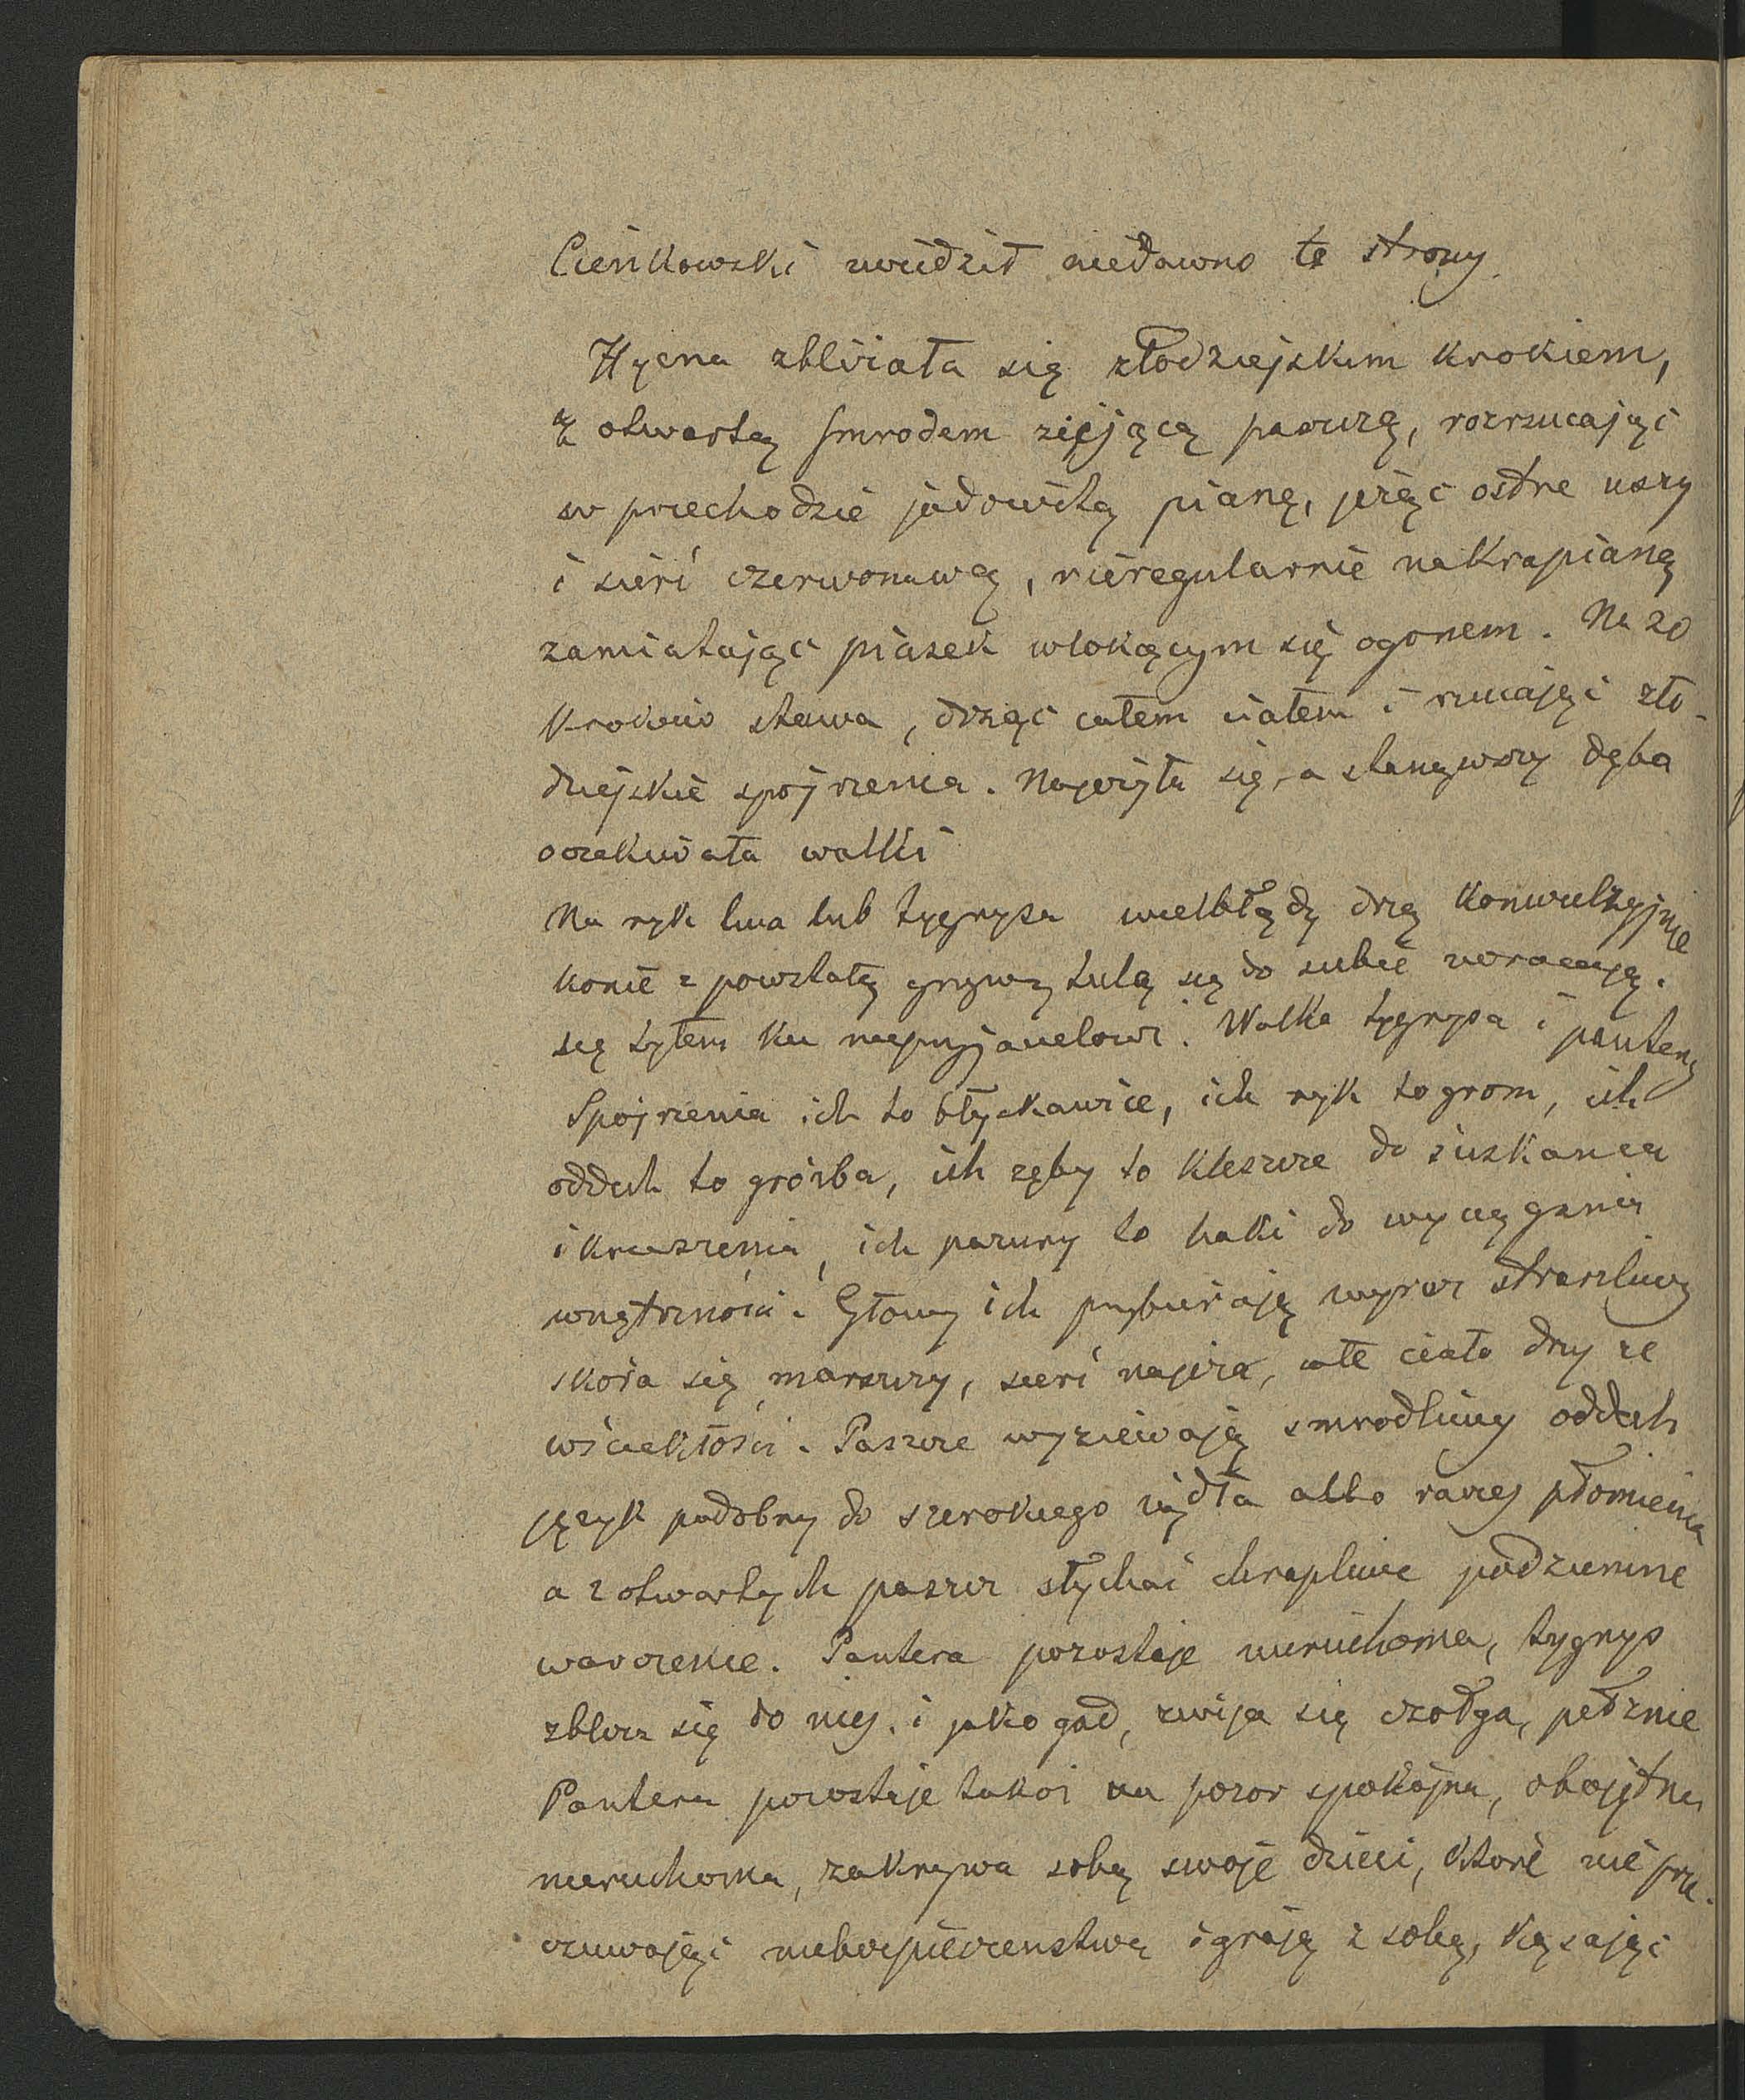 Cienkowski zwiedził niedawno te strony.
Hyena zbliżała się złodziejskim krokiem,
z otwartą smrodem ziejącą paszczą, rozrzucając
w przechodzie jadowitą pianę, jeżąc ostre uszy
i sierć czerwonawą, nieregularnie nakrapianą
zamiatając piasek wlokącym się ogonem. Na 20
kroków stawa, drżąc całem ciałem i rzucając zło-
dziejskie spojrzenia. Najeżyła się, a stanąwszy dęba
oczekiwała walki
Na ryk lwa lub tygrysa wielbłądy drżą konwulsyjnie
konie z powstałą grzywą tulą się do siebie zwracają.
się tyłem ku nieprzyjacielowi. Walka tygrysa i pantery
Spojrzenia ich to błyskawice, ich ryk to grom, ich
oddech to groźba, ich zęby to kleszcze do ściskania
i kruszenia, ich pazury to haki do wyciągania
wnętrzności. Głowy ich przybierają wyraz straszliwy
skóra się marszczy, sierć najeża, całe ciało drży ze
wściekłości. Paszcze wyziewają smrodliwy oddech
język podobny do szerokiego żądła albo raczej płomienia
a z otwartych paszcz słychać chrapliwe podziemne
warczenie. Pantera pozostaje nieruchoma, tygrys
zbliża się do niej. i jako gad, zwija się czołga, pełznie
Pantera pozostaje takoż na pozór spokojna, obojętna
nieruchoma, zakrywa sobą swoje dzieci, które nie prze-
czuwając niebezpieczeństwa igrają z sobą, kąsając